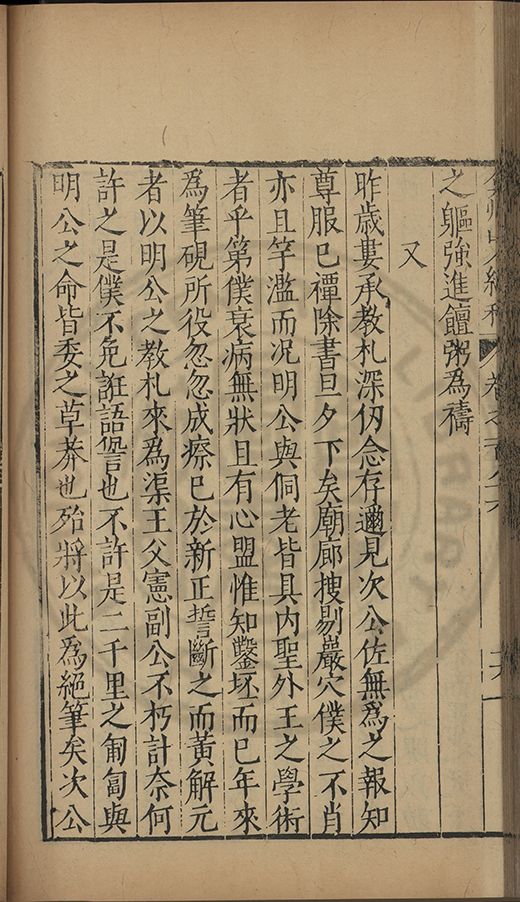 之軀強進饘粥為禱
又
昨歲婁承教札深仞念存邇見次公佐無為之報知
尊服已禫除書旦夕下矣廟廊搜剔巖穴僕之不肖
亦且竽濫而况明公與伺老皆具内聖外王之學術
者乎第僕衰病無狀且有心盟惟知鑿坯而已年來
為筆硯所役忽忽成瘵已於新正誓斷之而黃解元
者以明公之教札來為渠王父憲副公不朽計奈何
許之是僕不免誑語諐也不許是二千里之匍匐與
明公之命皆委之草莽也殆將以此為絕筆矣次公